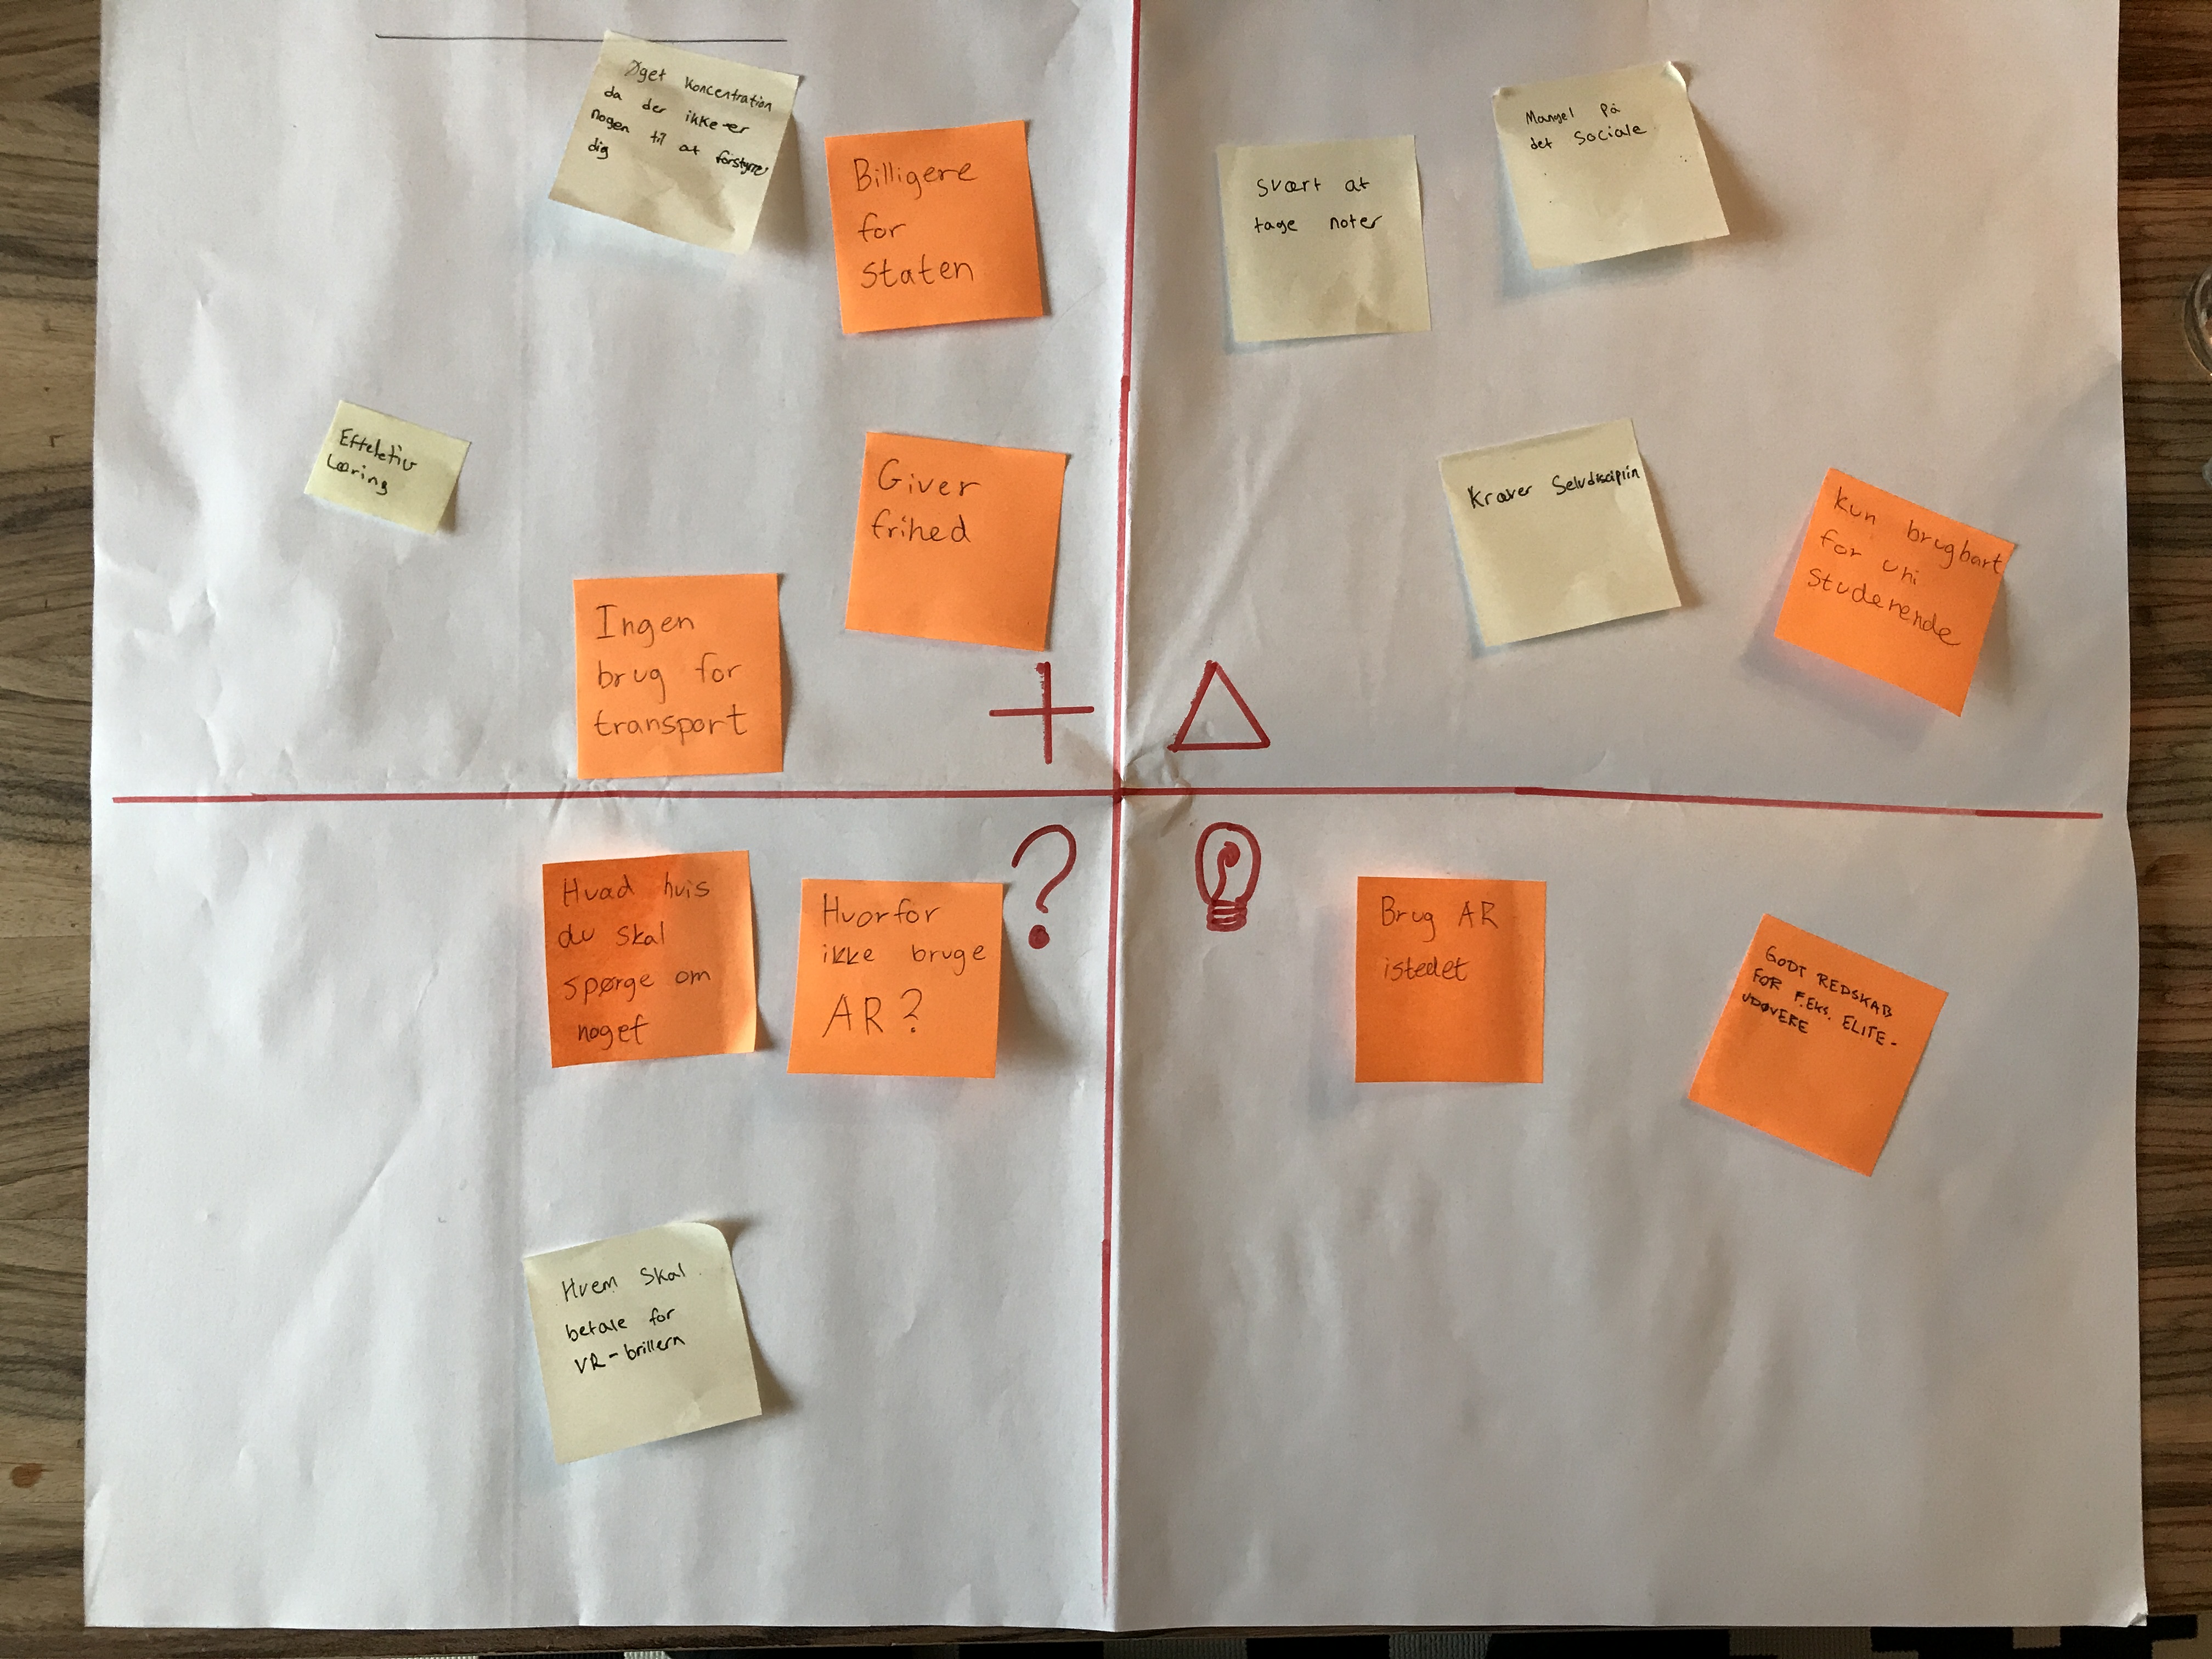 Øget koncentration
da der ikke er
nogen til at forstyrre
dig
Billigere
for
staten
Effektiv
Læring
Giver
frihed
Ingen
brug for
transport
+
svært at
tage noter
Mangel på
det sociale
Kræver Selvdisciplin
kun brugbart
for uni
studerende
Hvad hvis
du skal
spørge om
noget
Hvorfor
ikke bruge
AR?
?
Hvem skal
betale for
VR-brillern
Brug AR
istedet
GODT REDSKAB
FOR F.EKS. ELITE-
UDØVERE